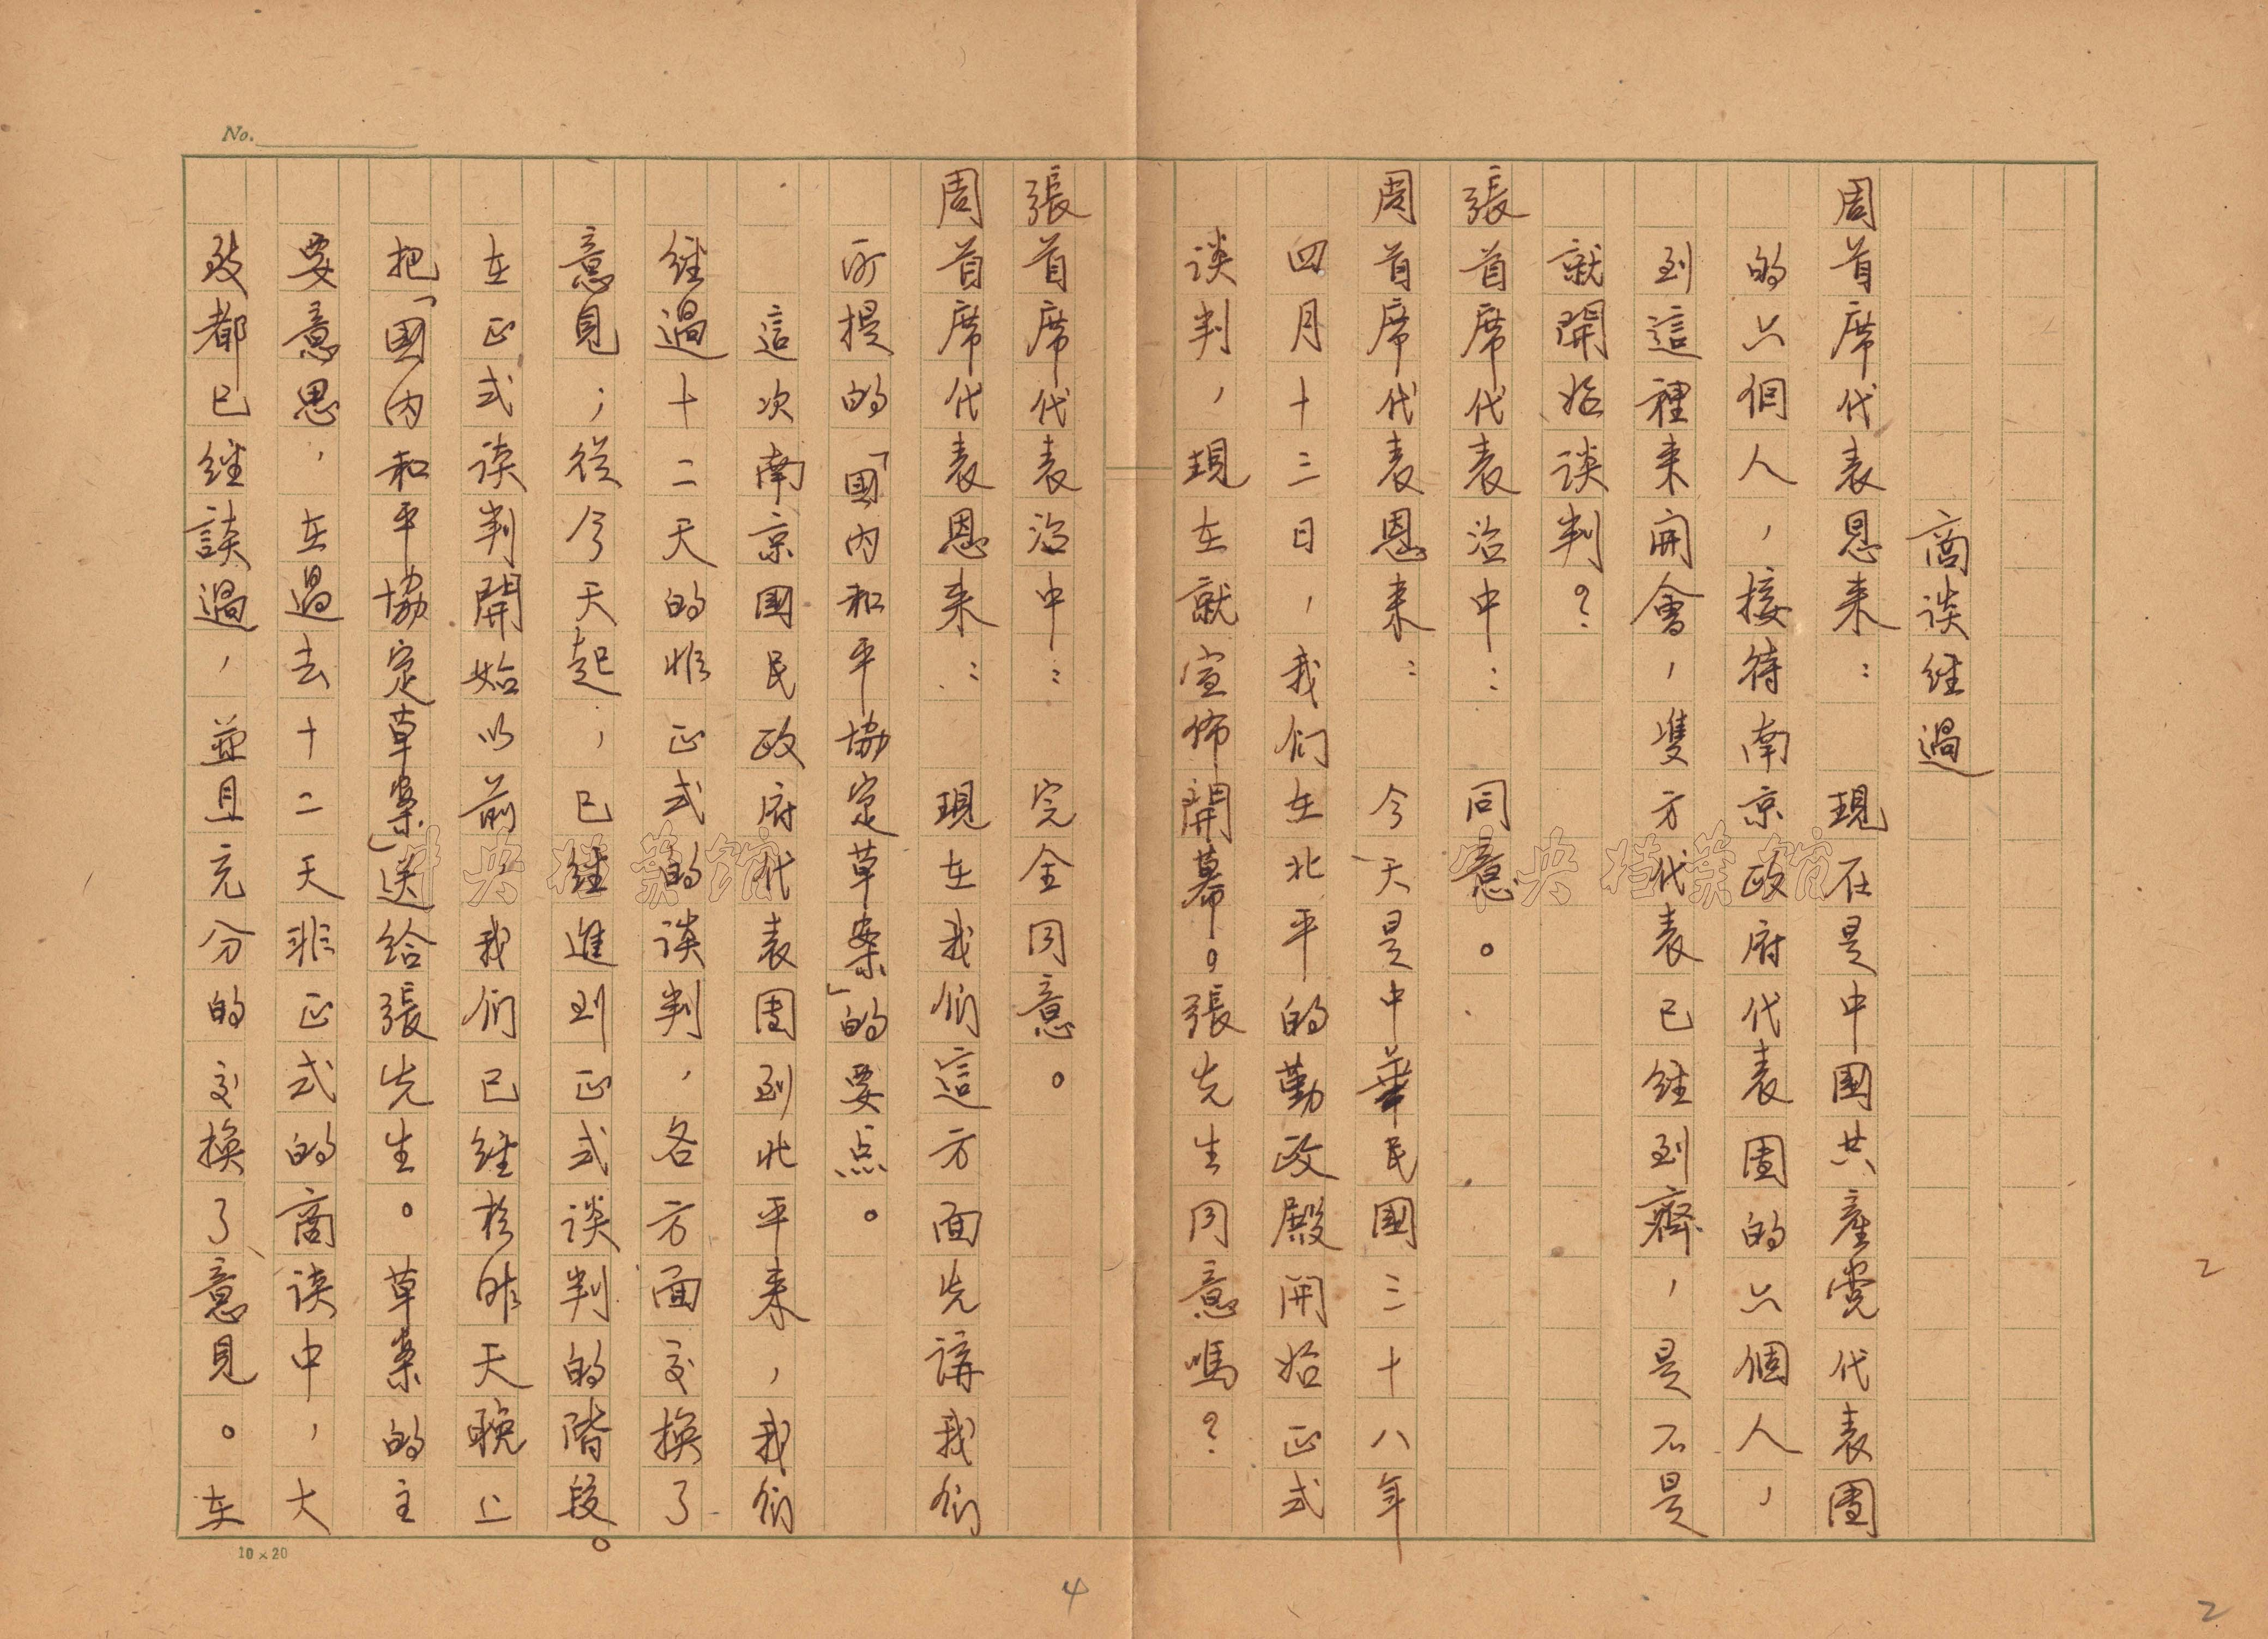 商谈经過
周首席代表恩来：　現在是中国共產党代表团
的六個人，接待南京政府代表团的六個人，
到這裡来開會，雙方代表已经到齊，是不是
就開始谈判？
張首席代表治中：　同意。
周首席代表恩来：　今天是中華民國三十八年
四月十三日，我们在北平的勤政殿開始正式
谈判，現在就宣佈開幕。張先生同意嗎？
張首席代表治中：　完全同意。
周首席代表恩来：　現在我们這方面先講我们
所提的「國內和平協定草案」的要点。
這次南京國民政府代表团到北平来，我们
经過十二天的非正式的谈判，各方面交换了
意見；從今天起，已经進到正式谈判的階段。
在正式谈判開始以前我们已经於昨天晚上
把「國内和平協定草案」送给張先生。草案的主
要意思，在過去十二天非正式的商谈中，大
致都已经談過，並且充分的交换了意見。在
No.
10×20
中央档案馆
中央档案馆
4
2
2